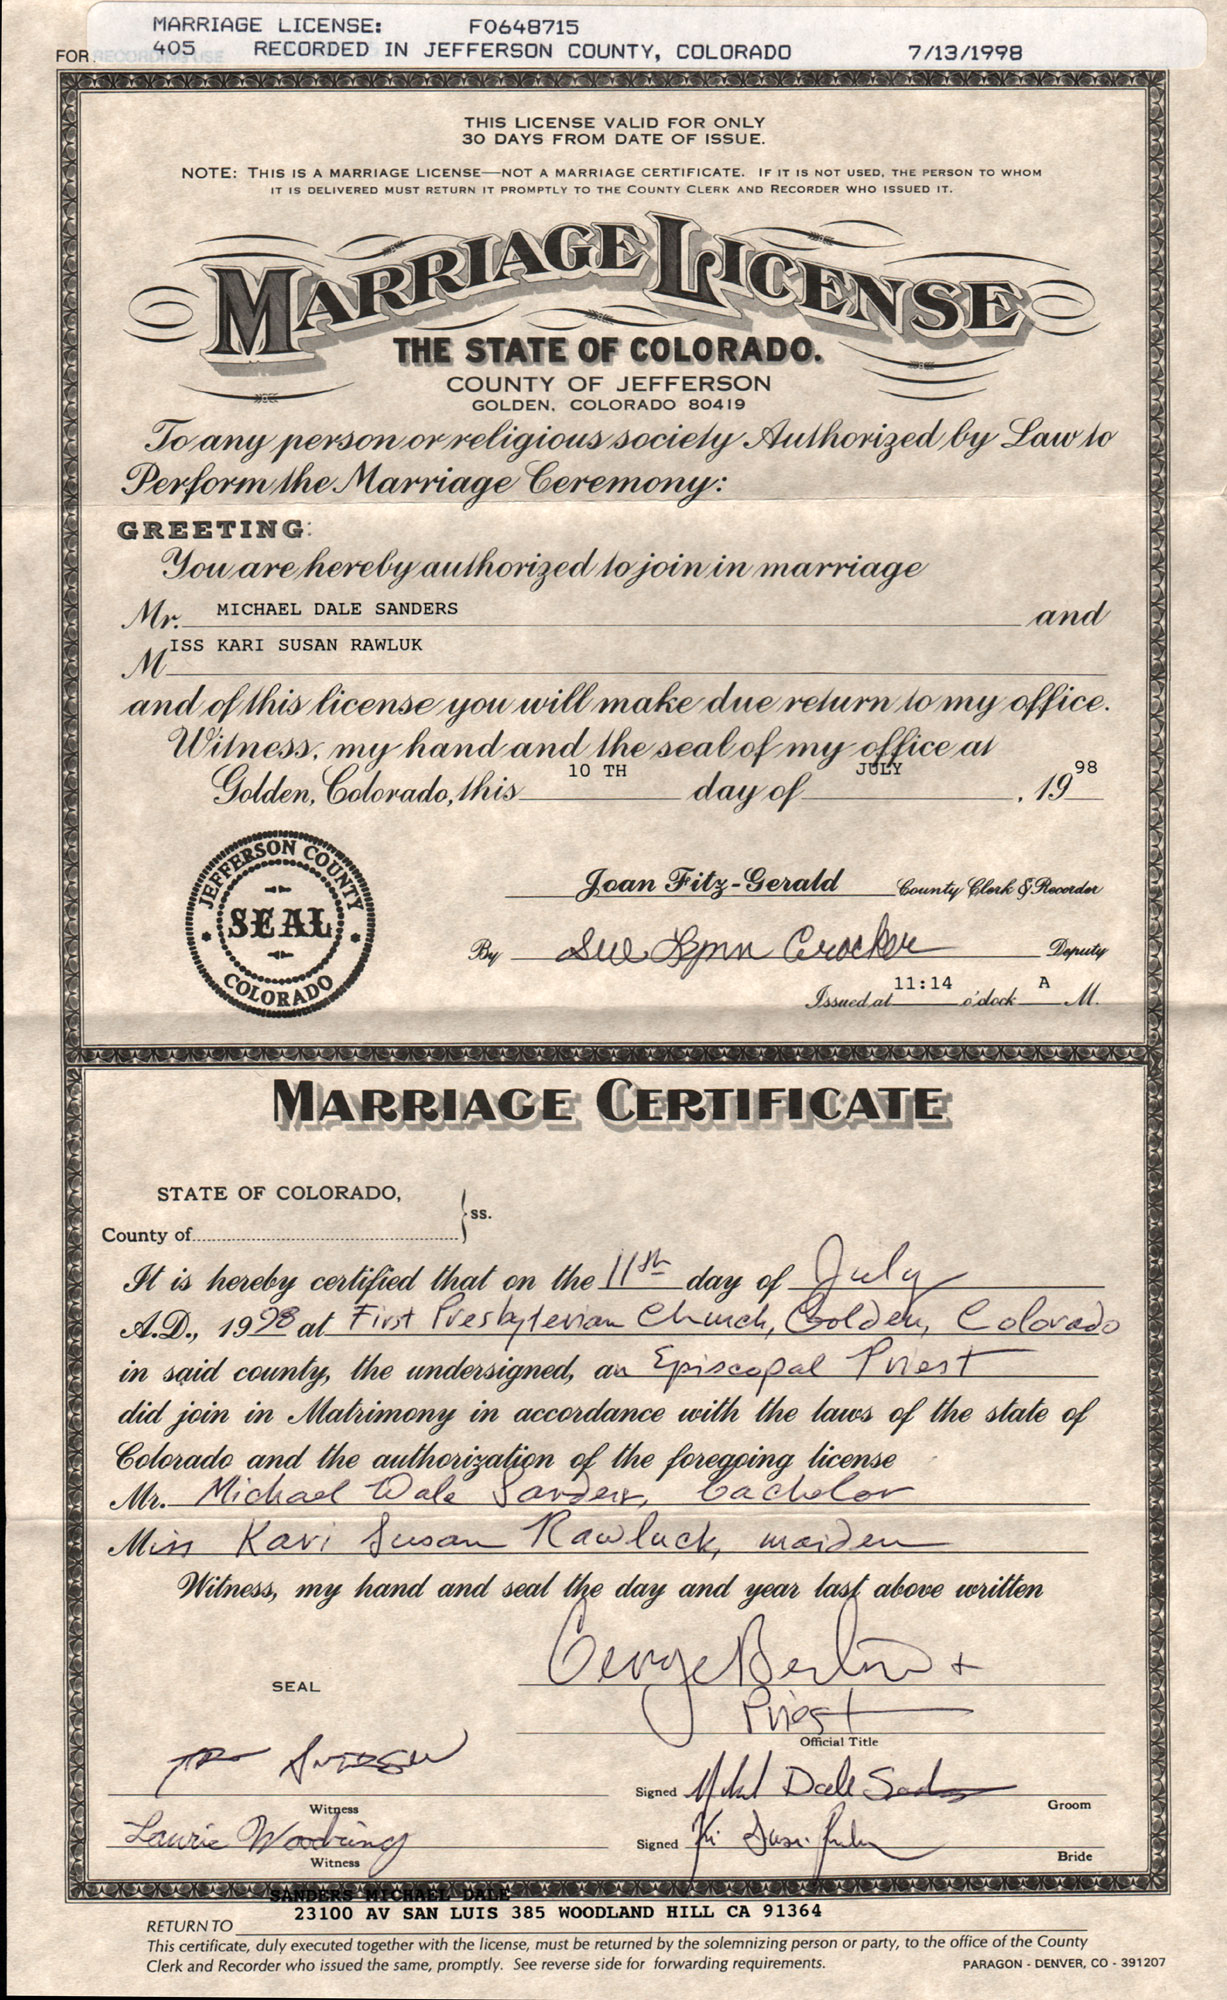 MARRIAGE LICENSE: F0648715
405 RECORDED IN JEFFERSON COUNTY, COLORADO 7/13/1998
FOR RECORDING USE
THIS LICENSE VALID FOR ONLY
30 DAYS FROM DATE OF ISSUE.
NOTE: THIS IS A MARRIAGE LICENSE—NOT A MARRIAGE CERTIFICATE. IF IT IS NOT USED, THE PERSON TO WHOM
IT IS DELIVERED MUST RETURN IT PROMPTLY TO THE COUNTY CLERK AND RECORDER WHO ISSUED IT.
MARRIAGE LICENSE
THE STATE OF COLORADO.
COUNTY OF JEFFERSON
GOLDEN, COLORADO 80419
To any person or religious society Authorized by Law to
Perform the Marriage Ceremony:
GREETING:
You are hereby authorized to join in marriage
Mr. MICHAEL DALE SANDERS and
MISS KARI SUSAN RAWLUK
and of this license you will make due return to my office.
Witness, my hand and the seal of my office at
Golden, Colorado, this 10 TH day of JULY, 1998
JEFFERSON COUNTY
SEAL
COLORADO
Joan Fitz-Gerald County Clerk & Recorder
By Sue Lynn Crocker Deputy
Issued at 11:14 o'clock A M.
MARRIAGE CERTIFICATE
STATE OF COLORADO,
County of
ss.
It is hereby certified that on the 11th day of July
A.D., 1998 at First Presbyterian Church, Golden, Colorado
in said county, the undersigned, an Episcopal Priest
did join in Matrimony in accordance with the laws of the state of
Colorado and the authorization of the foregoing license
Mr. Michael Dale Sanders, bachelor
Miss Kari Susan Rawluck, maiden
Witness, my hand and seal the day and year last above written
George +
SEAL
Priest
Official Title
Witness
Signed Dale Groom
Laurie Woodring
Witness
Signed Bride
SANDERS MICHAEL DALE
23100 AV SAN LUIS 385 WOODLAND HILL CA 91364
RETURN TO
This certificate, duly executed together with the license, must be returned by the solemnizing person or party, to the office of the County
Clerk and Recorder who issued the same, promptly. See reverse side for forwarding requirements. PARAGON - DENVER, CO - 391207